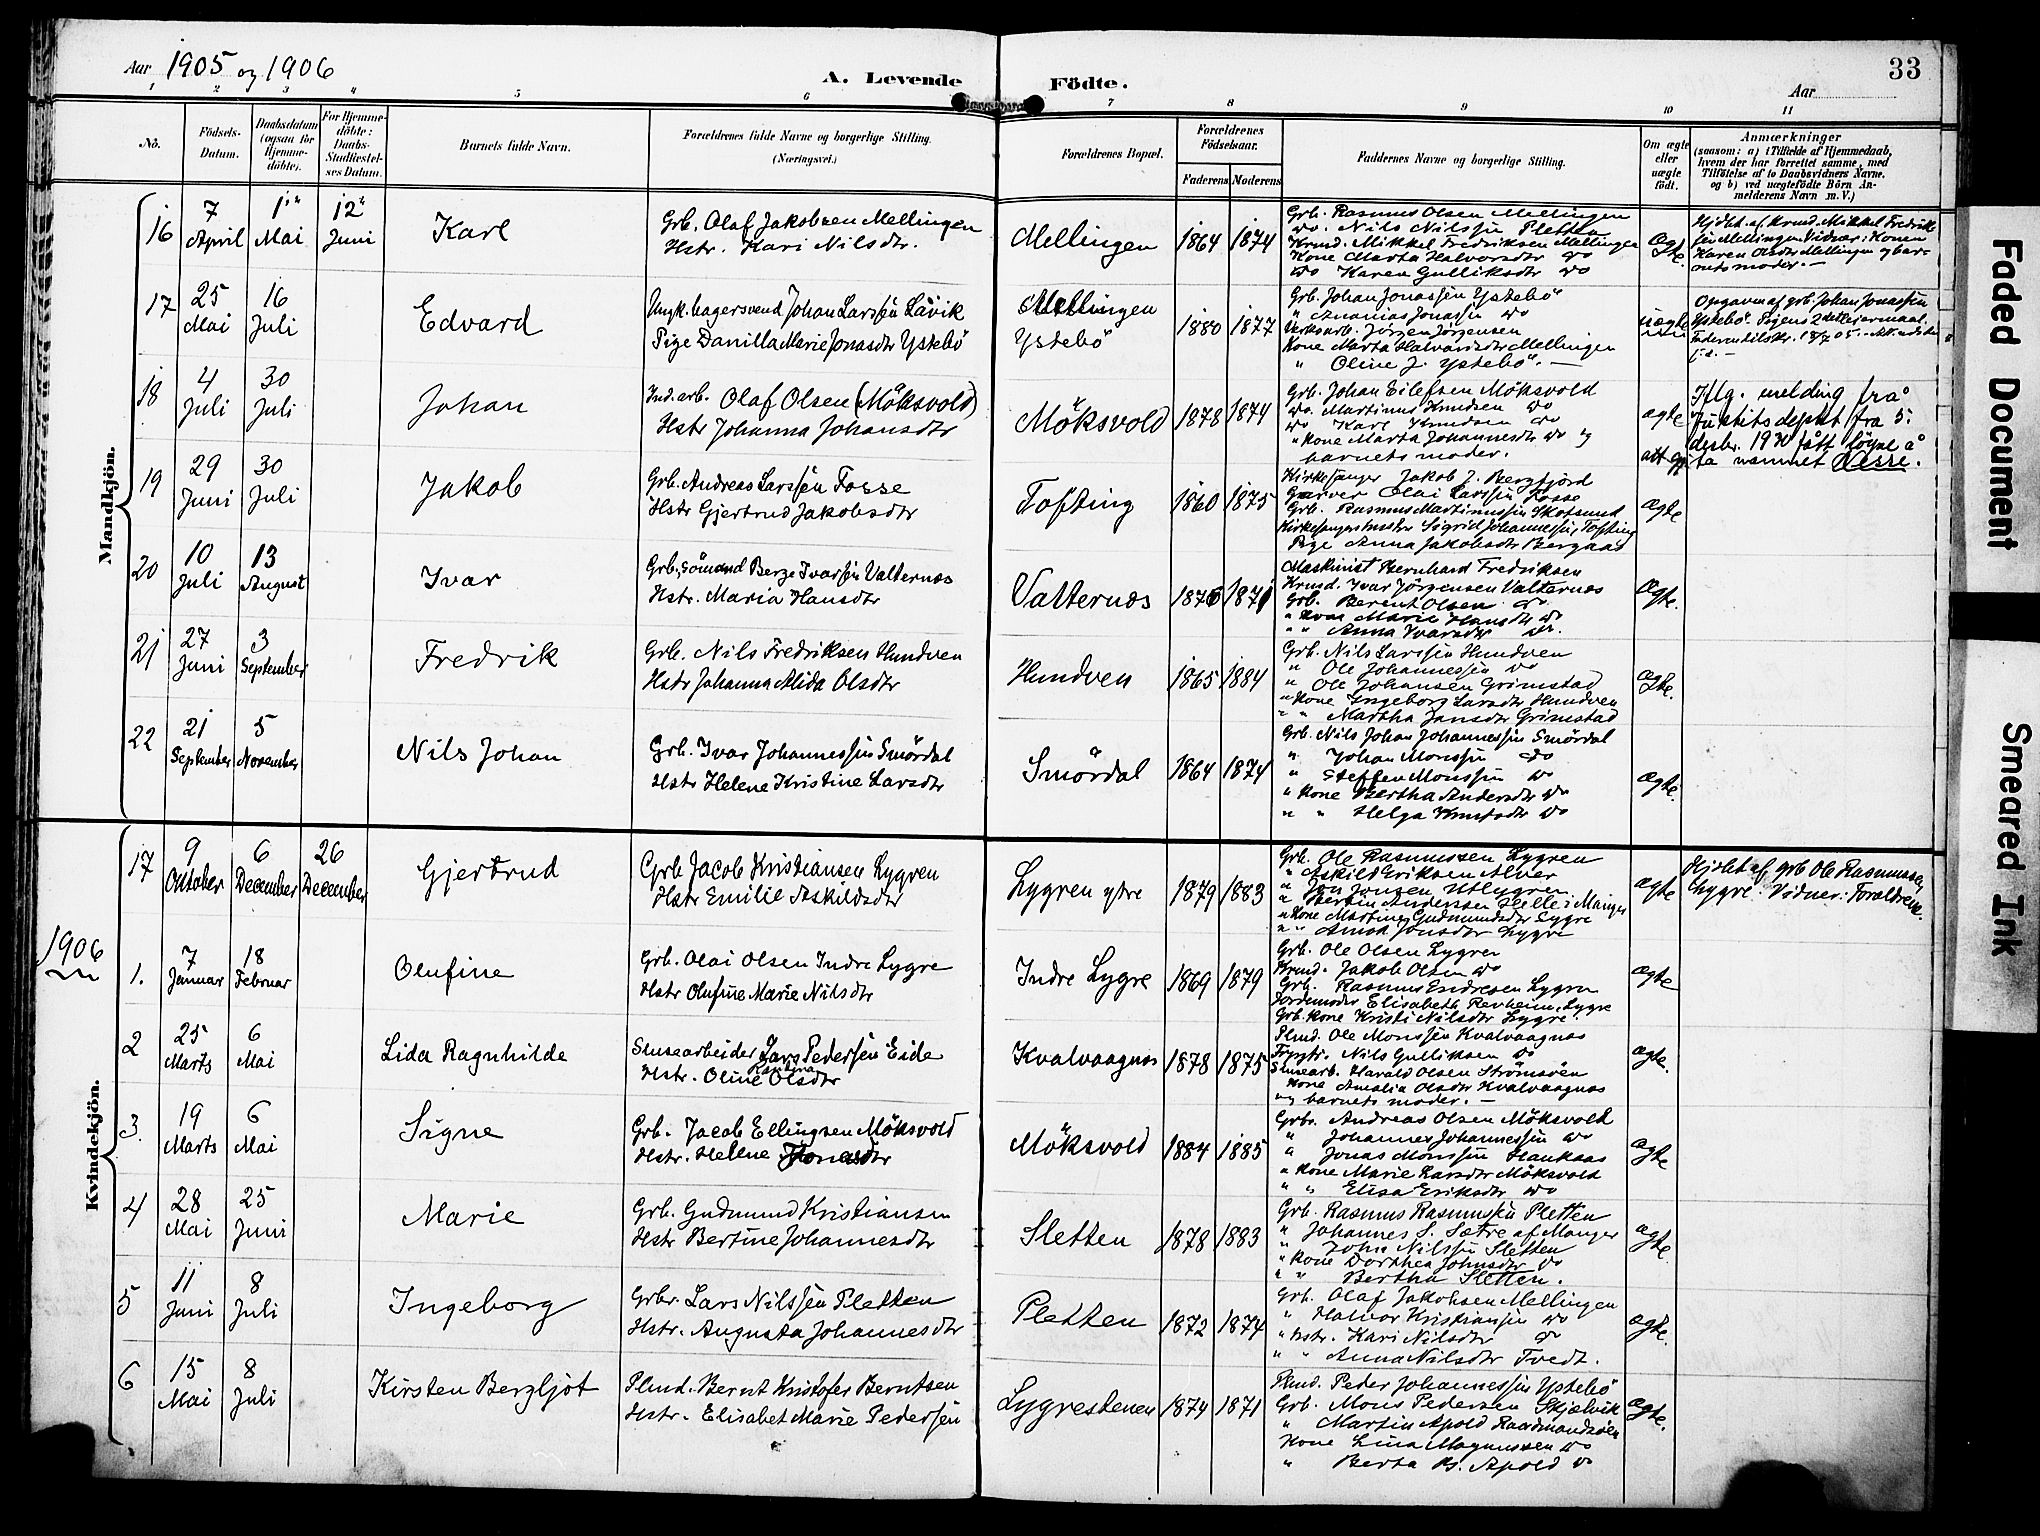 Aar 1905 og 1906
A. Levende Födte.
33
Aar
1 2 3 4 5 6 7 8 9 10 11
No.
Födsels-Datum.
Daabsdatum (ogsaa for Hjemmedöbte).
For Hjemmedöbte: Daabs-Stadfæstelses Datum.
Barnets fulde Navn.
Forældrenes fulde Navne og borgerlige Stilling. (Næringsvei.)
Forældrenes Bopæl.
Forældrenes Födselsaar.
Faderens Moderens
Faddernes Navne og borgerlige Stilling.
Om ægte eller uægte födt.
Anmærkninger
(saasom: a) i Tilfælde af Hjemmedaab,
hvem der har forrettet samme, med
Tilföielse af to Daabsvidners Navne,
og b) ved uægtefödte Börn Anmelderens Navn m. V.)
Mandkjön.
16 7 April 1 Mai 12 Juni Karl
Grb. Olaf Jakobsen Mellingen
Hstr. Kari Nilsdtr.
Mellingen 1864 1874
Grb. Rasmus Olsen Mellingen
do. Nils Nilssen Pletten
Krmd. Mikkel Fredriksen Mellingen
Kone Marta Halvorsdtr do
do Karen Gulliksdtr do
Ægte.
Hjdbt. af Krmd. Mikkel Fredriksen Mellingen. Vidner: Konen
Karen Olsdtr Mellingen og barnets moder. —
17 25 Mai 16 Juli Edvard
Ungk. bagersvend Johan Larssen Låvik
Pige Danilla Marie Jonasdtr Ystebö
Mellingen
Ystebö 1880 1877
Grb. Johan Jonassen Ystebö
" Ananias Jonassen do
Verksarb. Jörgen Jörgensen
Kone Marta Halvorsdtr Mellingen
" Oline J. Ystebö. —
uægte
Opgaven af grb. Johan Jonassen
Ystebö. Pigens 2det leiermaal.
18 4 Juli 30 Juli Johan
Ind.arb. Olaf Olsen (Möksvold)
Hstr Johanna Johansdtr
Möksvold 1878 1874
Grb. Johan Eilefsen Möksvold
do. Martinus Knudsen do
do Karl Knudsen do
" Kone Marta Johannesdtr do og
barnets moder.
ægte
Iflg. melding frå
Justitsdeptet fra 5.
desbr. 19 fått löyve å
ta namnet Nesse.
19 29 Juni 30 Juli Jakob
Grb. Andreas Larssen Fosse
Hstr Gjertrud Jakobsdtr
Tofting 1860 1875
Kirkesanger Jakob J. Bergfjord
Garver Olai Larssen Fosse
Grb. Rasmus Martinussen Skotsund
Kirkesangerhustru Sigrid Johannessen, Tofting
Pige Anna Jakobsdtr Bergaas
ægte
20 10 Juli 13 August Ivar
Grb., sömand Berge Ivarsen Valternæs
Hstr. Maria Hansdtr
Valternæs 1876 1871
Maskinist Bernhard Fredriksen
Krmd. Ivar Jörgensen Valternæs
Grb. Berent Olsen do
" Kone Marie Hansdtr do
" " Anna Ivarsdtr do.
Ægte.
21 27 Juni 3 September Fredrik
Grb. Nils Fredriksen Hundven
Hstr Johanna Alida Olsdtr
Hundven 1865 1884
Grb. Nils Larssen Hundven
" Ole Johannessen do
" Ole Johansen Grimstad
" Kone Ingeborg Larsdtr Hundven
" " Martha Jansdtr Grimstad
ægte.
22 21 September 5 November Nils Johan
Grb. Ivar Johannessen Smördal
Hstr Helene Kristine Larsdtr
Smördal 1864 1874
Grb. Nils Johan Johannessen Smördal
" Johan Monssen do
" Steffen Monssen do
" Kone Bertha Andersdtr do
" " Helga Knutsdtr do
ægte.
Kvindekjön.
17 9 Oktober 6 December 26 December Gjertrud
Grb Jacob Kristiansen Lygren
Hstr Emilie Askildsdtr
Lygren ytre 1879 1883
Grb. Ole Rasmussen Lygren
" Askild Eriksen Alver
" Jon Jonsen Utlygren
" Bertin Anderssen Helle i Manger
" Kone Martine Gudmundsdtr Lygre
" " Anna Jonsdtr Lygre
ægte
Hjdbt af grb Ole Rasmussen
Lygre. Vidner: Forældrene.
1906
1. 7 Januar 18 Februar Olufine
Grb. Olai Olsen Indre Lygre
Hstr Olufine Marie Nilsdtr
Indre Lygre 1869 1879
Grb. Ole Olsen Lygren
Krmd. Jakob Olsen do
Grb. Rasmus Endresen Lygren
Jordemoder Elisabeth Revheim, Lygre
Grb. kone Kristi Nilsdtr Lygre.
ægte
2 25 Marts 6 Mai Lida Ragnhilde
Slusearbeider Lars Pedersen Eide
Hstr. Oline Olsdtr
Kvalvaagnæs 1878 1875
Plmd. Ole Monssen Kvalvaagnæs
Nils Gulliksen do
Slusearb. Harald Olsen Strömsöen
Kone Amalia Olsdtr Kvalvaagnæs
og barnets moder. —
ægte.
3. 19 Marts 6 Mai Signe
Grb. Jacob Ellingsen Möksvold
Hstr. Helene Jonasdtr
Möksvold 1884 1885
Grbr. Andreas Olsen Möksvold
" Johannes Johannessen do
" Jonas Monssen Haukaas
" Kone Marie Larsdtr Möksvold
" " Elisa Eriksdtr do
ægte
4 28 Mai 25 Juni Marie
Grb. Gudmund Kristiansen
Hstr Bertine Johannesdtr
Sletten 1878 1883
Grb. Rasmus Rasmussen Pletten
" Johannes S. Sætre af Manger
" John Nilssen Sletten
" Kone Dorthea Johnsdtr do
" " Bertha Sletten.
ægte
5 11 Juni 8 Juli Ingeborg
Grbr. Lars Nilssen Pletten
Hstr. Augusta Johannesdtr
Pletten 1872 1874
Grb. Olaf Jakobsen Mellingen
" Halvor Kristiansen do
" Hstr. Kari Nilsdtr do
" " Anna Nilsdtr Tvedt.
ægte.
6 15 Mai 8 Juli Kirsten Bergljot
Plmd. Bernt Kristofer Berntsen
Hstr. Elisabet Marie Pedersen
Lygrestenen 1874 1871
Plmd. Peder Johannessen Ystebö
Grb. Mons Pedersen Skjælvik
" Martin Apold Raadmandsöen
Kone Lina Magnussen do
" Berta B. Apold do
ægte.
Faded Document
Smeared Ink